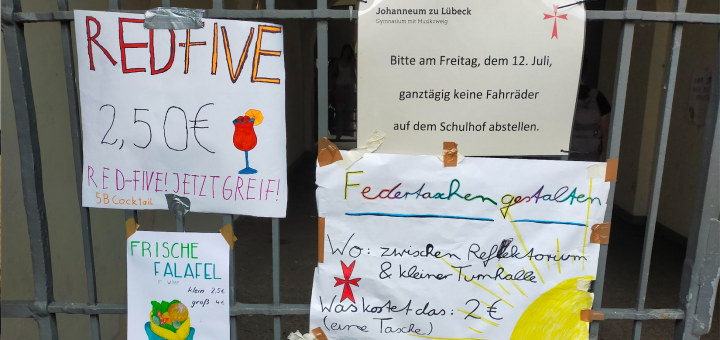 RED-FIVE
2,50€
RED-FIVE! JETZT GREIF!
5B Cocktail
Johanneum zu Lübeck
Gymnasium mit Musikzweig
Bitte am Freitag, dem 12. Juli,
ganztägig keine Fahrräder
auf dem Schulhof abstellen.
FRISCHE
FALAFEL
klein 2,5€
groß 4€
Federtaschen gestalten
Wo: zwischen Reflektorium
& kleiner Turnhalle
Was kostet das: 2 €
(eine Tasche)